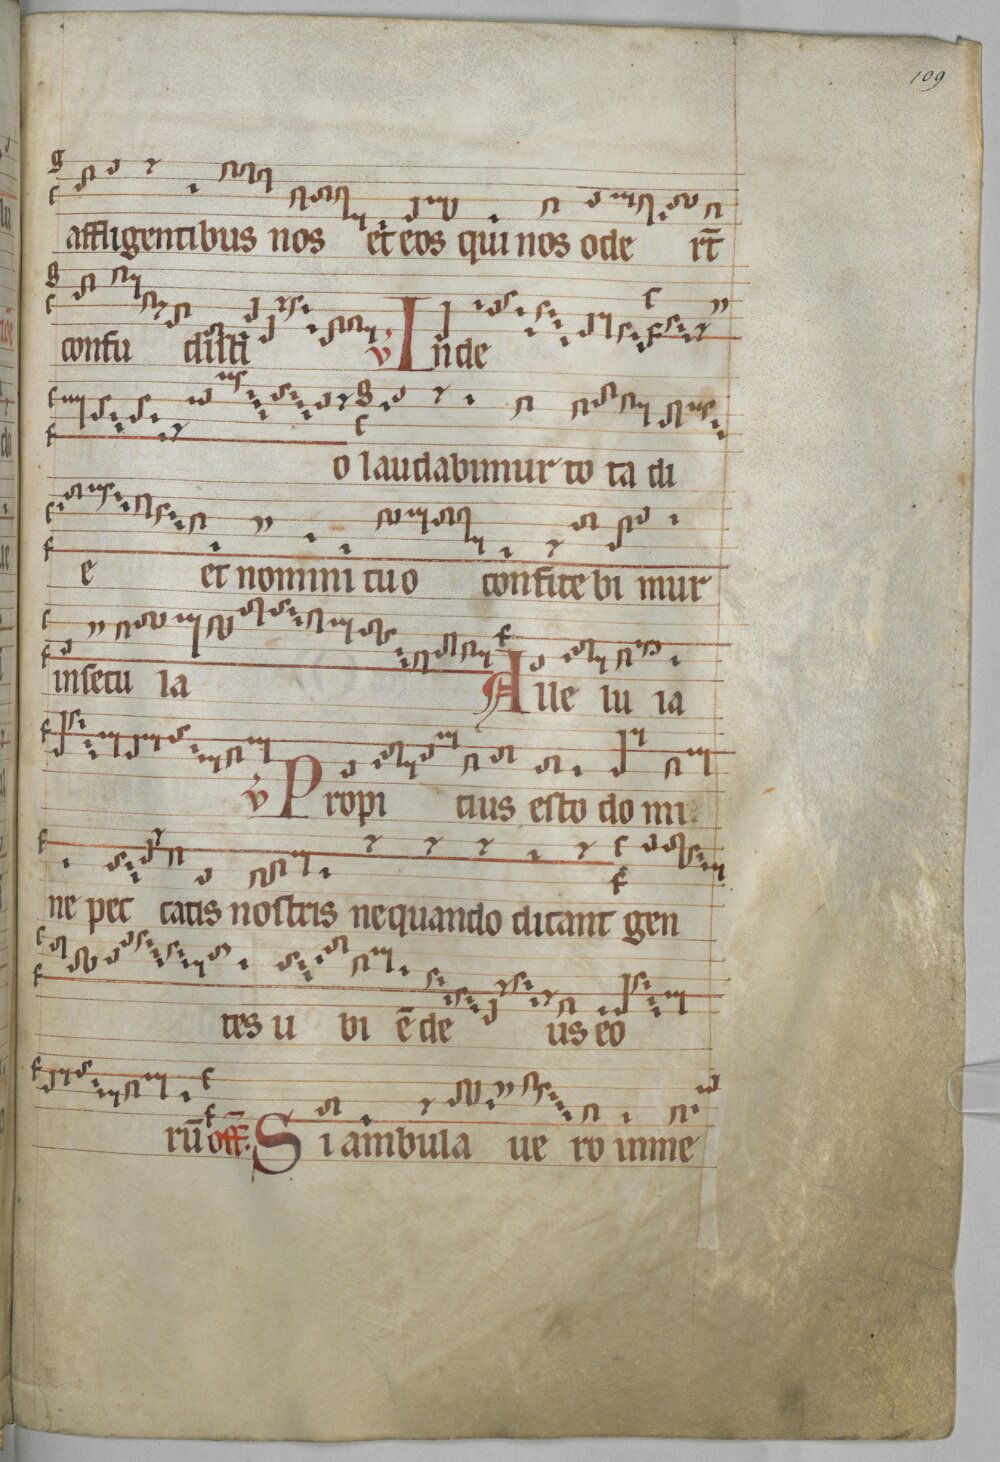 109
affligentibus nos et eos qui nos ode rt̄
confu disti ℣ Inde
o laudabimur to ta di
e et nomini tuo confite bi mur
insecu la Alle lu ia
℣ Propi tius esto do mi
ne pec catis nostris nequando dicant gen
tes u bi ē de us eo
rū off̄. Si ambula ue ro inme